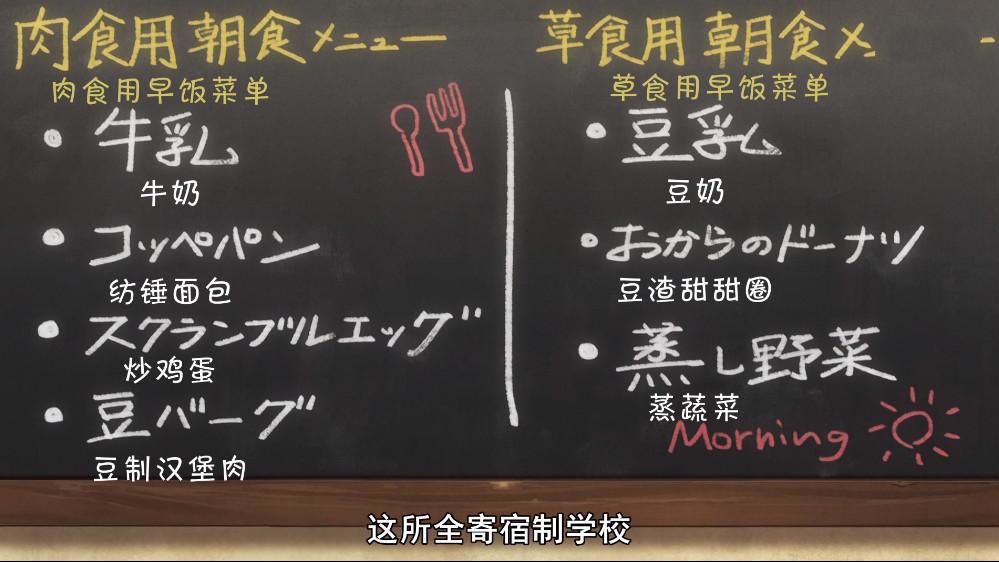 肉食用朝食メニュー
肉食用早饭菜单
・牛乳
牛奶
・コッペパン
纺锤面包
・スクランブルエッグ
炒鸡蛋
・豆バーグ
豆制汉堡肉
草食用朝食メ -
草食用早饭菜单
・豆乳
豆奶
・おからのドーナツ
豆渣甜甜圈
・蒸し野菜
蒸蔬菜
Morning
这所全寄宿制学校